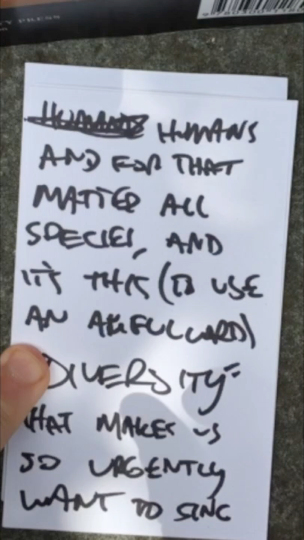 PRESS
HUMANS HUMANS
AND FOR THAT
MATTER ALL
SPECIES, AND
IT'S THIS (TO USE
AN AWFUL WORD)
DIVERSITY"
THAT MAKES US
SO URGENTLY
WANT TO SING